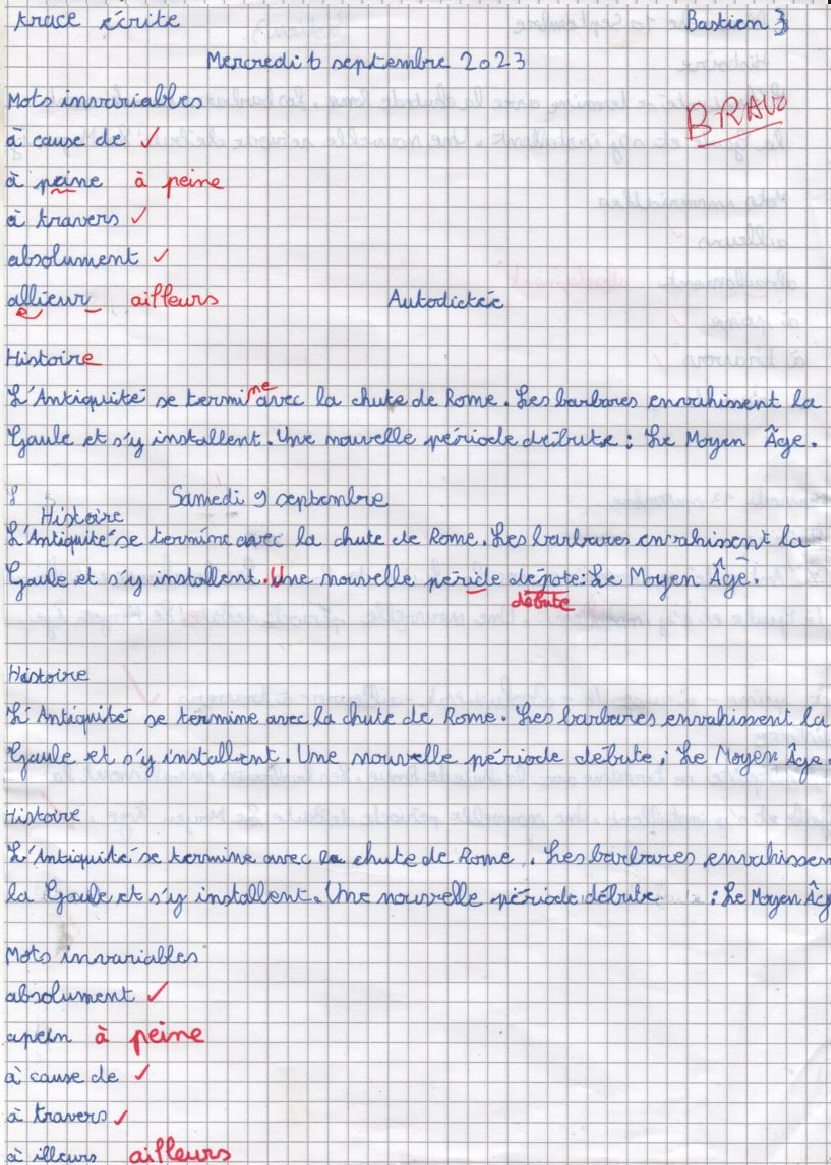 trace écrite Bastien 3
Mercredi 6 septembre 2023
Mots invariables
BRAVO
à cause de ✓
à peine à peine
à travers ✓
absolument ✓
allieur ailleurs Autodictée
Histoire
L'Antiquité se termine avec la chute de Rome. Les barbares envahissent la
Gaule et s'y installent. Une nouvelle période débute : Le Moyen Âge.
Samedi 9 septembre
Histoire
L'Antiquité se termine avec la chute de Rome. Les barbares envahissent la
Gaule et s'y installent. Une nouvelle péricle dépote : Le Moyen Âge.
débute
Histoire
L'Antiquité se termine avec la chute de Rome. Les barbares envahissent la
Gaule et s'y installent. Une nouvelle période débute ; Le Moyen Âge.
Histoire
L'Antiquité se termine avec la chute de Rome. Les barbares envahissen
la Gaule et s'y installent. Une nouvelle période débute : Le Moyen Âg
Mots invariables
absolument ✓
apein à peine
à cause de ✓
à travers ✓
à illeurs ailleurs